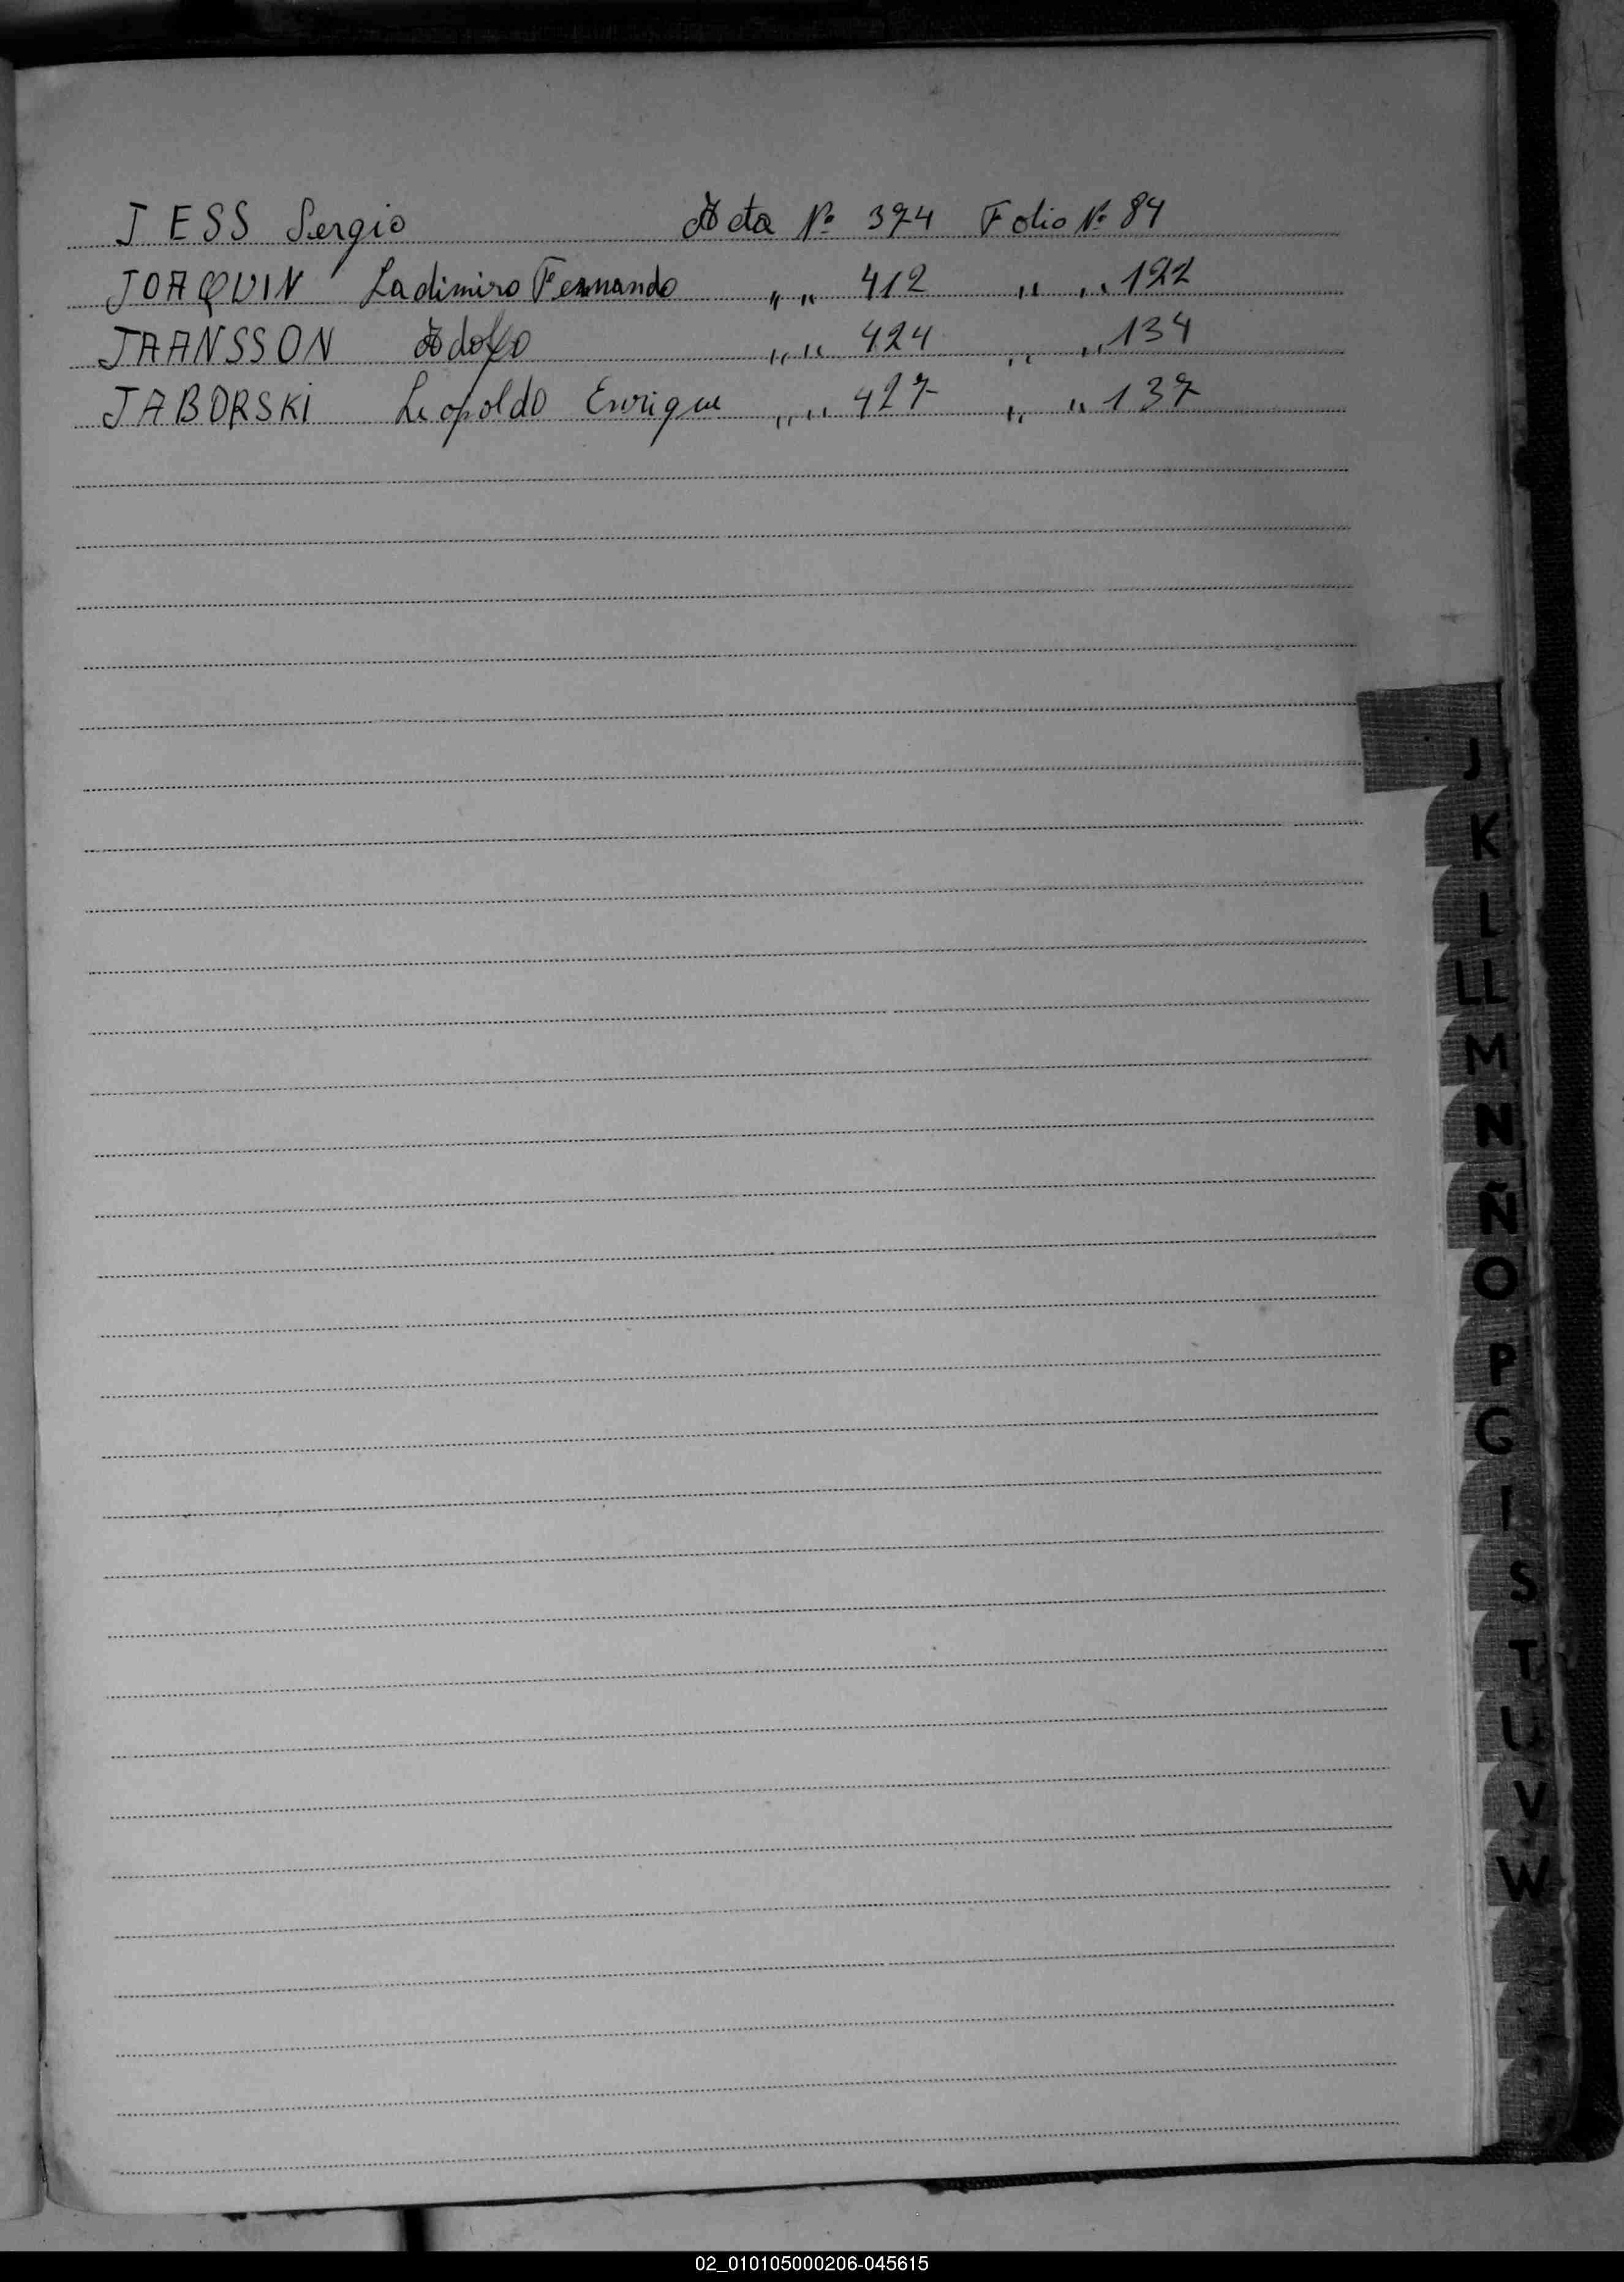 JESS Sergio Acta Nº 374 Folio Nº 84
JOAQUIN Ladimiro Fernando " " 412 " " 122
JAANSSON Adolfo " " 424 " " 134
JABORSKI Leopoldo Enrique " " 427 " " 137
J
K
LL
M
N
Ñ
O
P
S
T
U
V
W
02_010105000206-045615